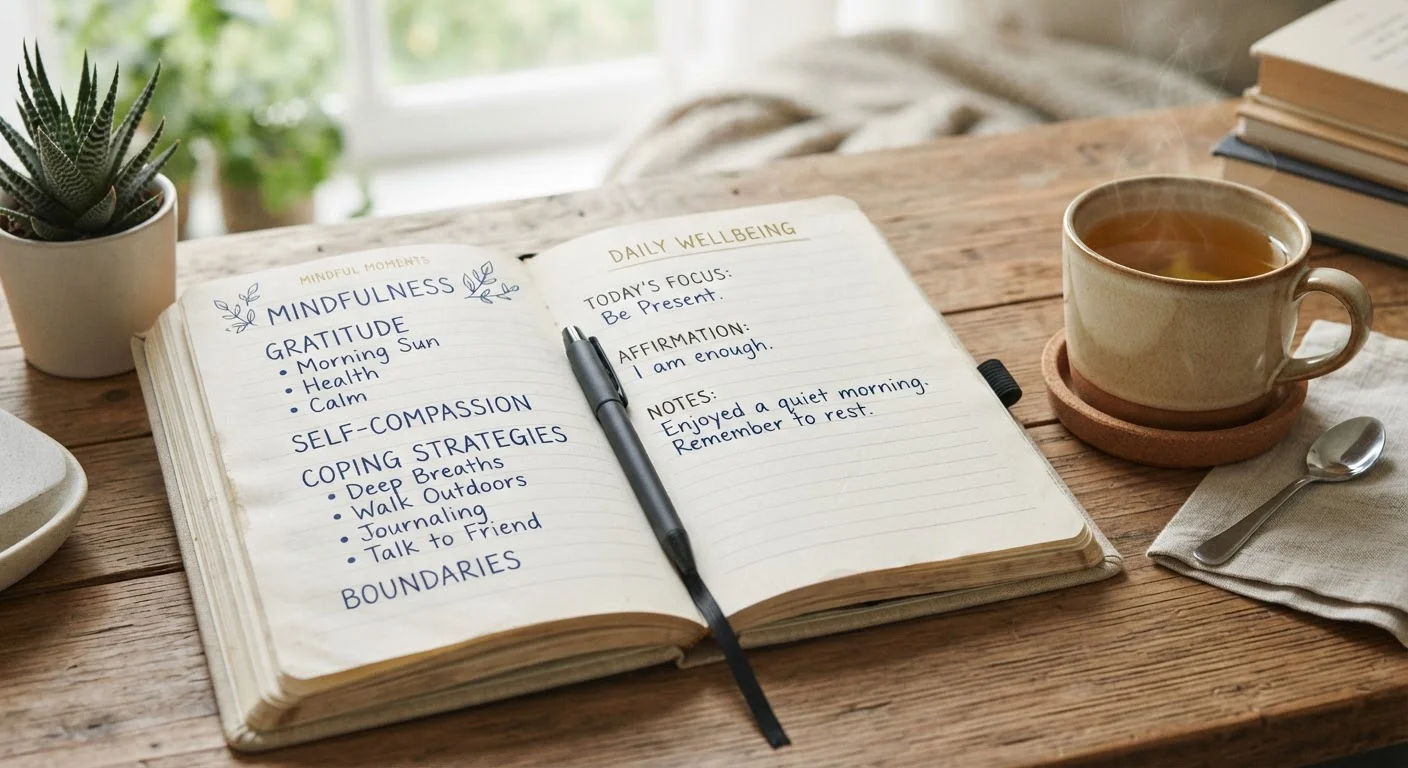 MINDFUL MOMENTS
MINDFULNESS
GRATITUDE
• Morning Sun
• Health
• Calm
SELF-COMPASSION
COPING STRATEGIES
• Deep Breaths
• Walk Outdoors
• Journaling
• Talk to Friend
BOUNDARIES
DAILY WELLBEING
TODAY'S FOCUS:
Be Present.
AFFIRMATION:
I am enough.
NOTES:
Enjoyed a quiet morning.
Remember to rest.